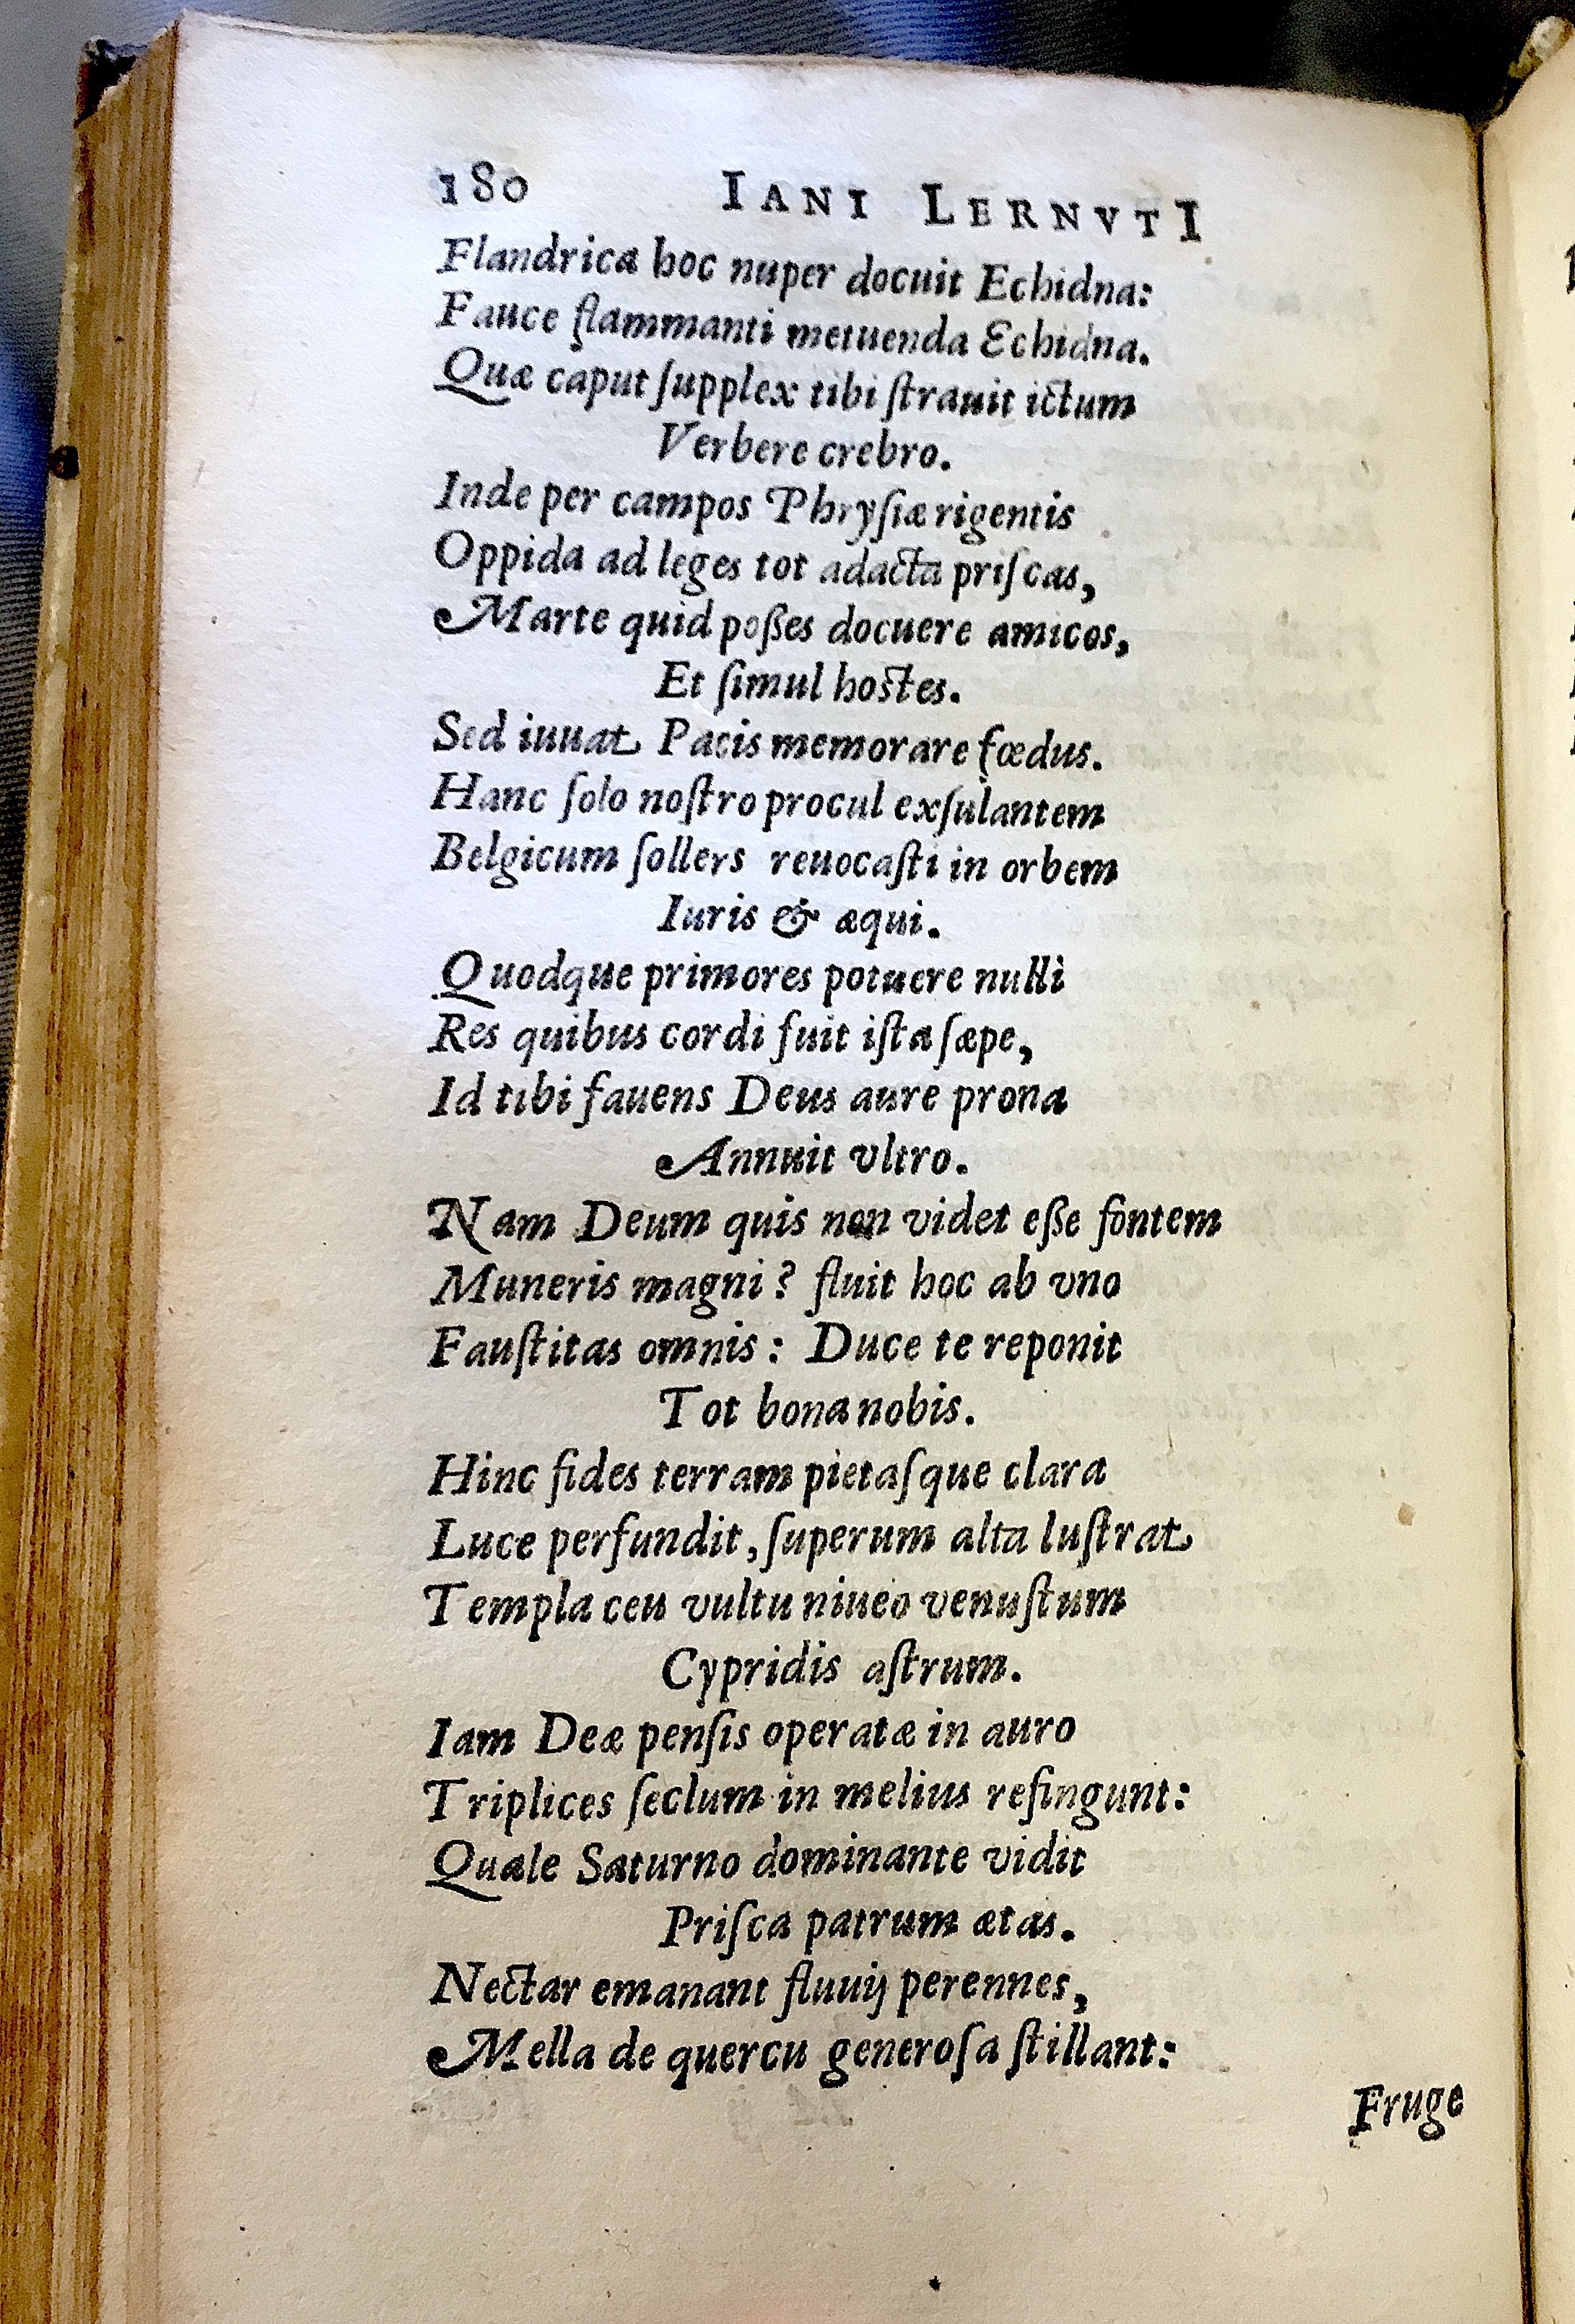 180 IANI LERNVTI
Flandrica hoc nuper docuit Echidna:
Fauce flammanti metuenda Echidna.
Quæ caput ſupplex tibi ſtrauit ictum
Verbere crebro.
Inde per campos Phryſiæ rigentis
Oppida ad leges tot adacta priſcas,
Marte quid poßes docuere amicos,
Et ſimul hostes.
Sed iuuat Pacis memorare fœdus.
Hanc ſolo noſtro procul exſulantem
Belgicum ſollers reuocaſti in orbem
Iuris & æqui.
Quodque primores potuere nulli
Res quibus cordi fuit iſta ſæpe,
Id tibi fauens Deus aure prona
Annuit vltro.
Nam Deum quis non videt eße fontem
Muneris magni? fluit hoc ab vno
Fauſtitas omnis: Duce te reponit
Tot bona nobis.
Hinc fides terram pietaſque clara
Luce perfundit, ſuperum alta luſtrat
Templa ceu vultu niueo venuſtum
Cypridis aſtrum.
Iam Deæ penſis operatæ in auro
Triplices ſeclum in melius refingunt:
Quale Saturno dominante vidit
Priſca patrum ætas.
Nectar emanant fluuij perennes,
Mella de quercu generoſa ſtillant:
Fruge